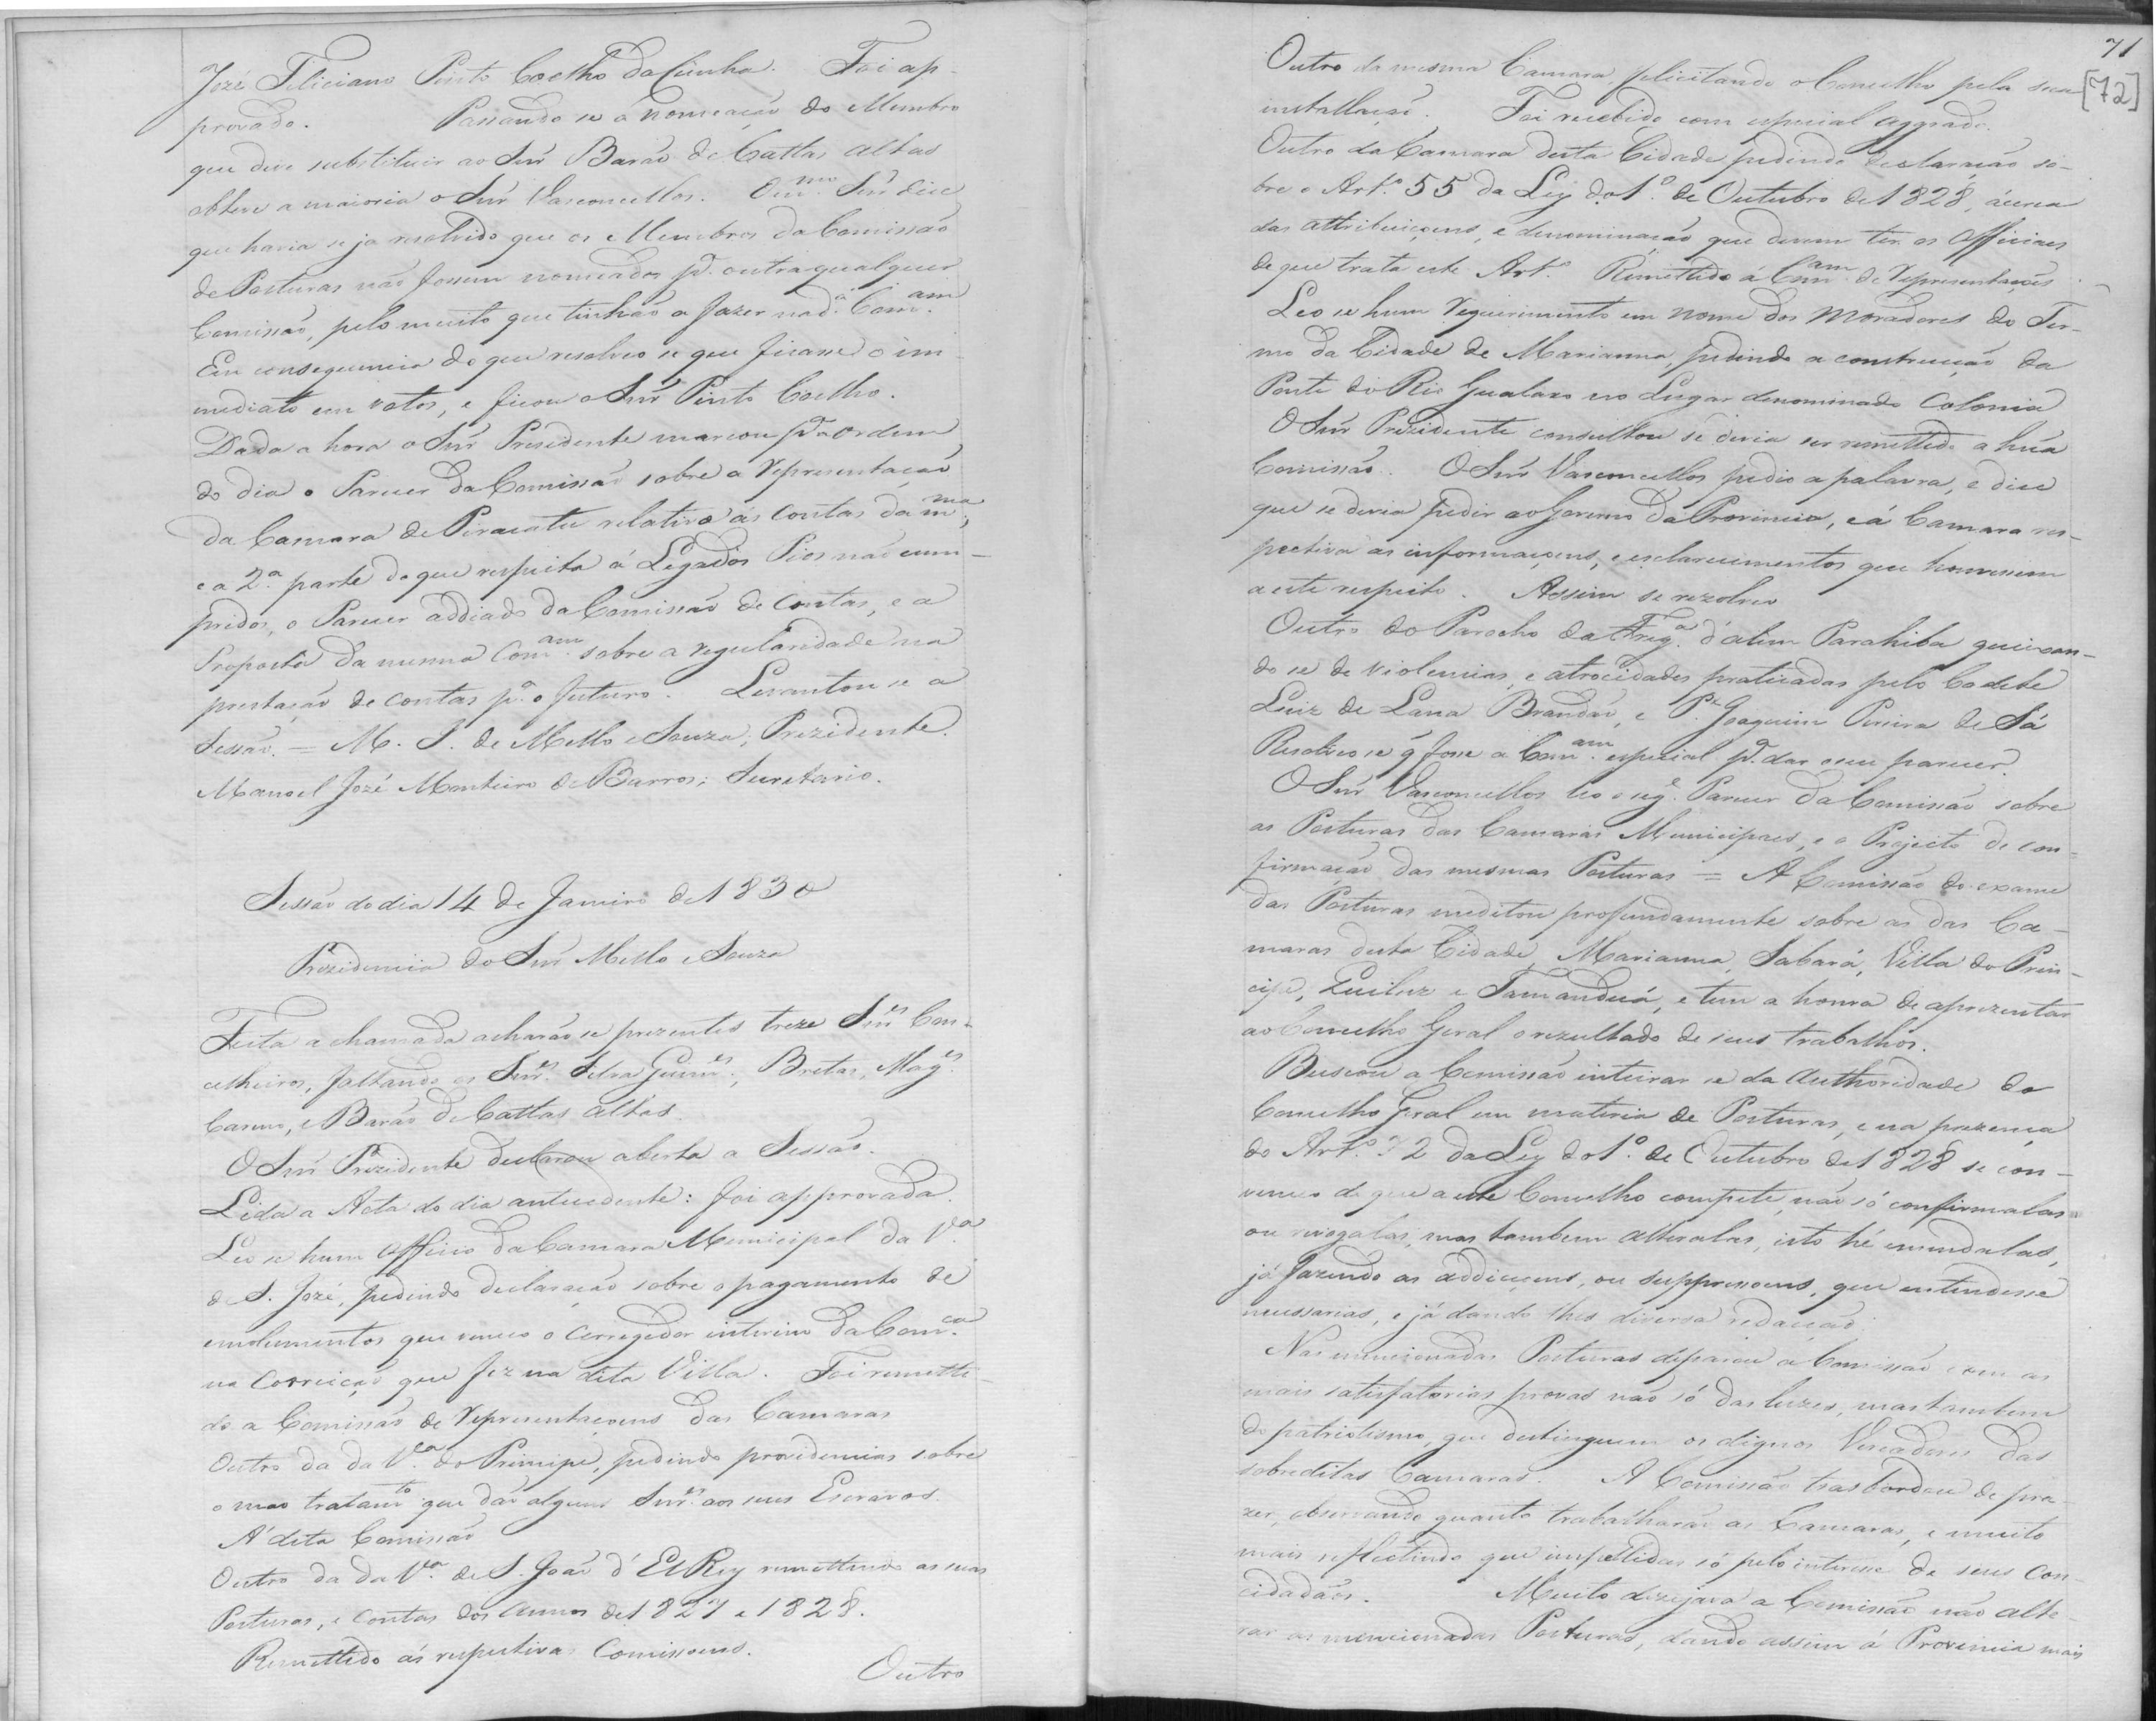 José Feliciano Pinto Coelho da Cunha. Foi ap-
provado. Passando se á nomeação do Membro
que deve substituir ao Snr̃ Barão de Cattas Altas
obteve a maioria o Snr̃ Vasconcellos. O m.mo Snr̃ disse
que havia se ja resolvido que os Membros da Comissão
de Posturas não fossem nomeados p.ª outra qualquer
Comissão, pelo muito que tinhão a fazer na d.ª Com.am
Em consequencia do que resolveo se que ficasse o im-
mediato em votos, e ficou o Snr̃ Pinto Coelho.
Dada a hora o Snr̃ Presidente marcou p.ª a ordem
do dia o Parecer da Comissão sobre a representação
da Camara de Piracatu relativa ás contas da m.ma,
e a 2.ª parte do que respeita á Legados Pios não cum-
pridos, o Parecer addiado da Comissão de Contas, e a
Proposta da mesma Com.am sobre a regularidade na
prestação de contas p.ª o futuro. Levantou se a
Sessão. = M. I. de Mello e Souza; Prezidente.
Manoel José Monteiro de Barros; Secretario.
Sessão do dia 14 de Janeiro de 1830
Prezidencia do Snr̃ Mello e Souza
Feita a chamada acharão se prezentes treze Snr.es Con-
celheiros, faltando os Snr.es Silva Guim.es, Bretas, Mag.es
Carmo, e Barão de Cattas Altas.
O Snr̃ Prezidente declarou aberta a Sessão.
Lida a Acta do dia antecedente: foi approvada.
Leo se hum Officio da Camara Municipal da V.ª
de S. José, pedindo declaração sobre o pagamento de
emolumentos que venceo o Corregedor interino da Com.ca
na Correição que fez na dita Villa. Foi remetti-
do a Comissão de Representaçoens das Camaras
Outro da da V.ª do Principe, pedindo providencias sobre
o mao tratam.to que dão alguns Snr.es aos seus Escravos.
A' dita Comissão
Outro da da V.ª de S. João d' El Rey remettendo as suas
Posturas, e contas dos annos de 1827 e 1828.
Remettido ás respectivas Comissoens.
Outro
71
[72]
Outro da mesma Camara felicitando o Concelho pela sua
installação. Foi recebido com especial aggrado.
Outro da Camara desta Cidade pedindo declaração so-
bre o Art.º 55 da Ley do 1.º de Outubro de 1828, ácerca
das attribuiçoens, e denominação que devem ter os Officiaes
de que trata este Art.º Remettido á Com.am de Representações
Leo se hum requerimento em nome dos moradores do Ter-
mo da Cidade de Marianna, pedindo a construcção da
Ponte do Rio Gualaxo no Lugar denominado Colonia
O Snr̃ Prezidente consultou se devia ser remettido a huã
Comissão. O Snr̃ Vasconcellos pedio a palavra, e disse
que se devia pedir ao Governo da Provincia, e á Camara res-
pectiva as informaçoens, e esclarecimentos que houvessem
a este respeito. Assim se rezolveo
Outro do Parocho da Freg.ª d'alem Parahiba queixan-
do se de violencias, e atrocidades praticadas pelo Cadete
Luiz de Lana Brandão, e P.e Joaquim Pereira de Sá
Resolveo se q̃ fosse a Com.am especial p.ª dar o seu parecer.
O Snr̃ Vasconcellos leo o seg.e Parecer da Comissão sobre
as Posturas das Camaras Municipaes, e o Projecto de con-
firmação das mesmas Posturas = A Comissão do exame
das Posturas meditou profundamente sobre as das Ca-
maras desta Cidade, Marianna, Sabará, Villa do Prin-
cipe, Queluz e Tamanduá, e tem a honra de aprezentar
ao Concelho Geral o rezultado de seus trabalhos.
Buscou a Comissão inteirar se da authoridade do
Concelho Geral em materia de Posturas, e na prezença
do Art.º 72 da Ley do 1.º de Outubro de 1828 se con-
venceo de que a este Concelho compete, não só confirmalas
ou revogalas, mas tambem alteralas, isto hé emendalas,
já fazendo as addiçoens, ou suppressoens, que entendesse
necessarias, e já dando lhes diversa redacção.
Nas mencionadas Posturas deparou a Comissão com as
mais satisfatorias provas não só das luzes, mas tambem
do patriotismo, que destinguem os dignos Vereadores das
sobreditas Camaras. A Comissão trasbordou de pra-
zer, observando quanto trabalharão as Camaras, e muito
mais reflectindo que impellidas só pelo interesse de seus Con-
cidadãos. Muito dezejava a Comissão não alte-
rar as mencionadas Posturas, dando assim á Provincia mais